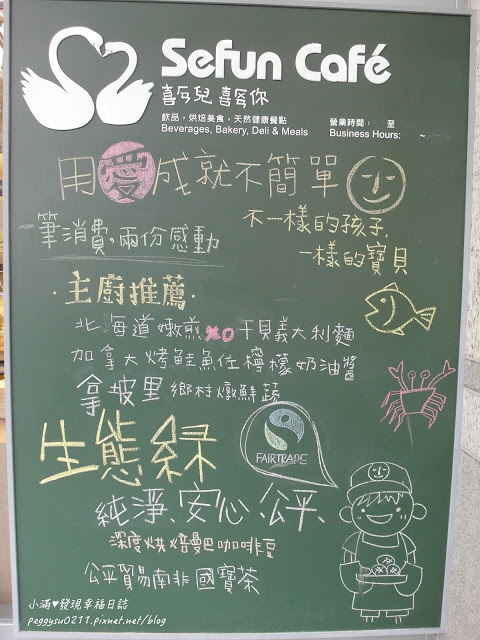 Sefun Café
喜ㄢ兒 喜ㄢ你
飲品，烘焙美食，天然健康餐點
Beverages, Bakery, Deli & Meals
營業時間： 至
Business Hours: ~
用愛成就不簡單
不一樣的孩子,
一樣的寶貝
筆消費,兩份感動
·主廚推薦·
北海道嫩煎XO干貝義大利麵
加拿大烤鮭魚佐檸檬奶油醬
拿坡里鄉村燉鮮蔬
生態綠
FAIRTRADE
純淨、安心、公平、
深度烘焙曼巴咖啡豆
公平貿易南非國寶茶
小滿♥發現幸福日誌
peggysu0211.pixnet.net/blog